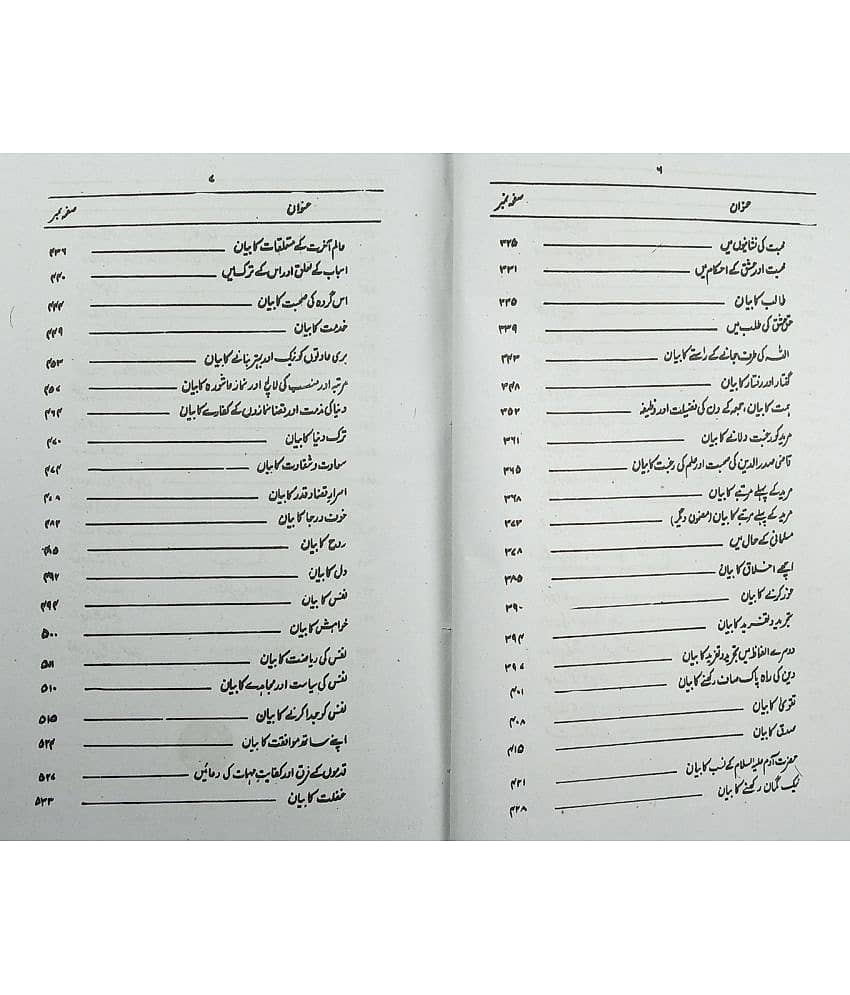 ۶
عنوان صفحہ نمبر
محبت کی نشانیوں میں ۳۲۵
محبت اور عشق کے احکام میں ۳۳۱
طالب کا بیان ۳۳۵
حق عشق کی طلب میں ۳۳۹
اللہ کی طرف جانے کے راستے کا بیان ۳۴۳
گفتار اور رفتار کا بیان ۳۴۸
ہمت کا بیان، جمعہ کے دن کی فضیلت اور وظیفہ ۳۵۲
مرید کو رغبت دلانے کا بیان ۳۶۱
قاضی صدر الدین کی محبت اور علم کی رغبت کا بیان ۳۶۵
مرید کے پہلے مرتبے کا بیان ۳۶۸
مرید کے پہلے مرتبے کا بیان (مضمون دیگر) ۳۷۳
مسلمانی کے حال میں ۳۷۸
اچھے اخلاق کا بیان ۳۸۵
غور کرنے کا بیان ۳۹۰
تجرید و تفرید کا بیان ۳۹۴
دوسرے الفاظ میں تجرید و تفرید کا بیان ۳۹۷
دین کی راہ پاک صاف رکھنے کا بیان ۴۰۱
تقویٰ کا بیان ۴۰۸
صدق کا بیان ۴۱۵
حضرت آدم علیہ السلام کے نسب کا بیان ۴۲۱
نیک گمان رکھنے کا بیان ۴۲۸
۷
عنوان صفحہ نمبر
عالم آخرت کے متعلقات کا بیان ۴۳۶
اسباب کے تعلق اور اس کے ترک میں ۴۴۰
اس گروہ کی صحبت کا بیان ۴۴۴
خدمت کا بیان ۴۴۹
بری عادتوں کو نیک اور بہتر بنانے کا بیان ۴۵۳
مرتبہ اور منصب کی لالچ اور نماز عاشورہ کا بیان ۴۵۷
دنیا کی مذمت اور قضا نمازوں کے کفارے کا بیان ۴۶۴
ترک دنیا کا بیان ۴۷۰
سعادت و شقاوت کا بیان ۴۷۴
اسرارِ قضا و قدر کا بیان ۴۷۸
خوف و رجا کا بیان ۴۸۲
روح کا بیان ۴۸۵
دل کا بیان ۴۹۲
نفس کا بیان ۴۹۴
خواہش کا بیان ۵۰۰
نفس کی ریاضت کا بیان
نفس کی سیاست اور مجاہدے کا بیان ۵۱۰
نفس کو جدا کرنے کا بیان ۵۱۵
اپنے ساتھ موافقت کا بیان ۵۲۴
قدموں کے فرق اور کفایتِ مہمات کی دعائیں ۵۲۷
غفلت کا بیان ۵۳۳